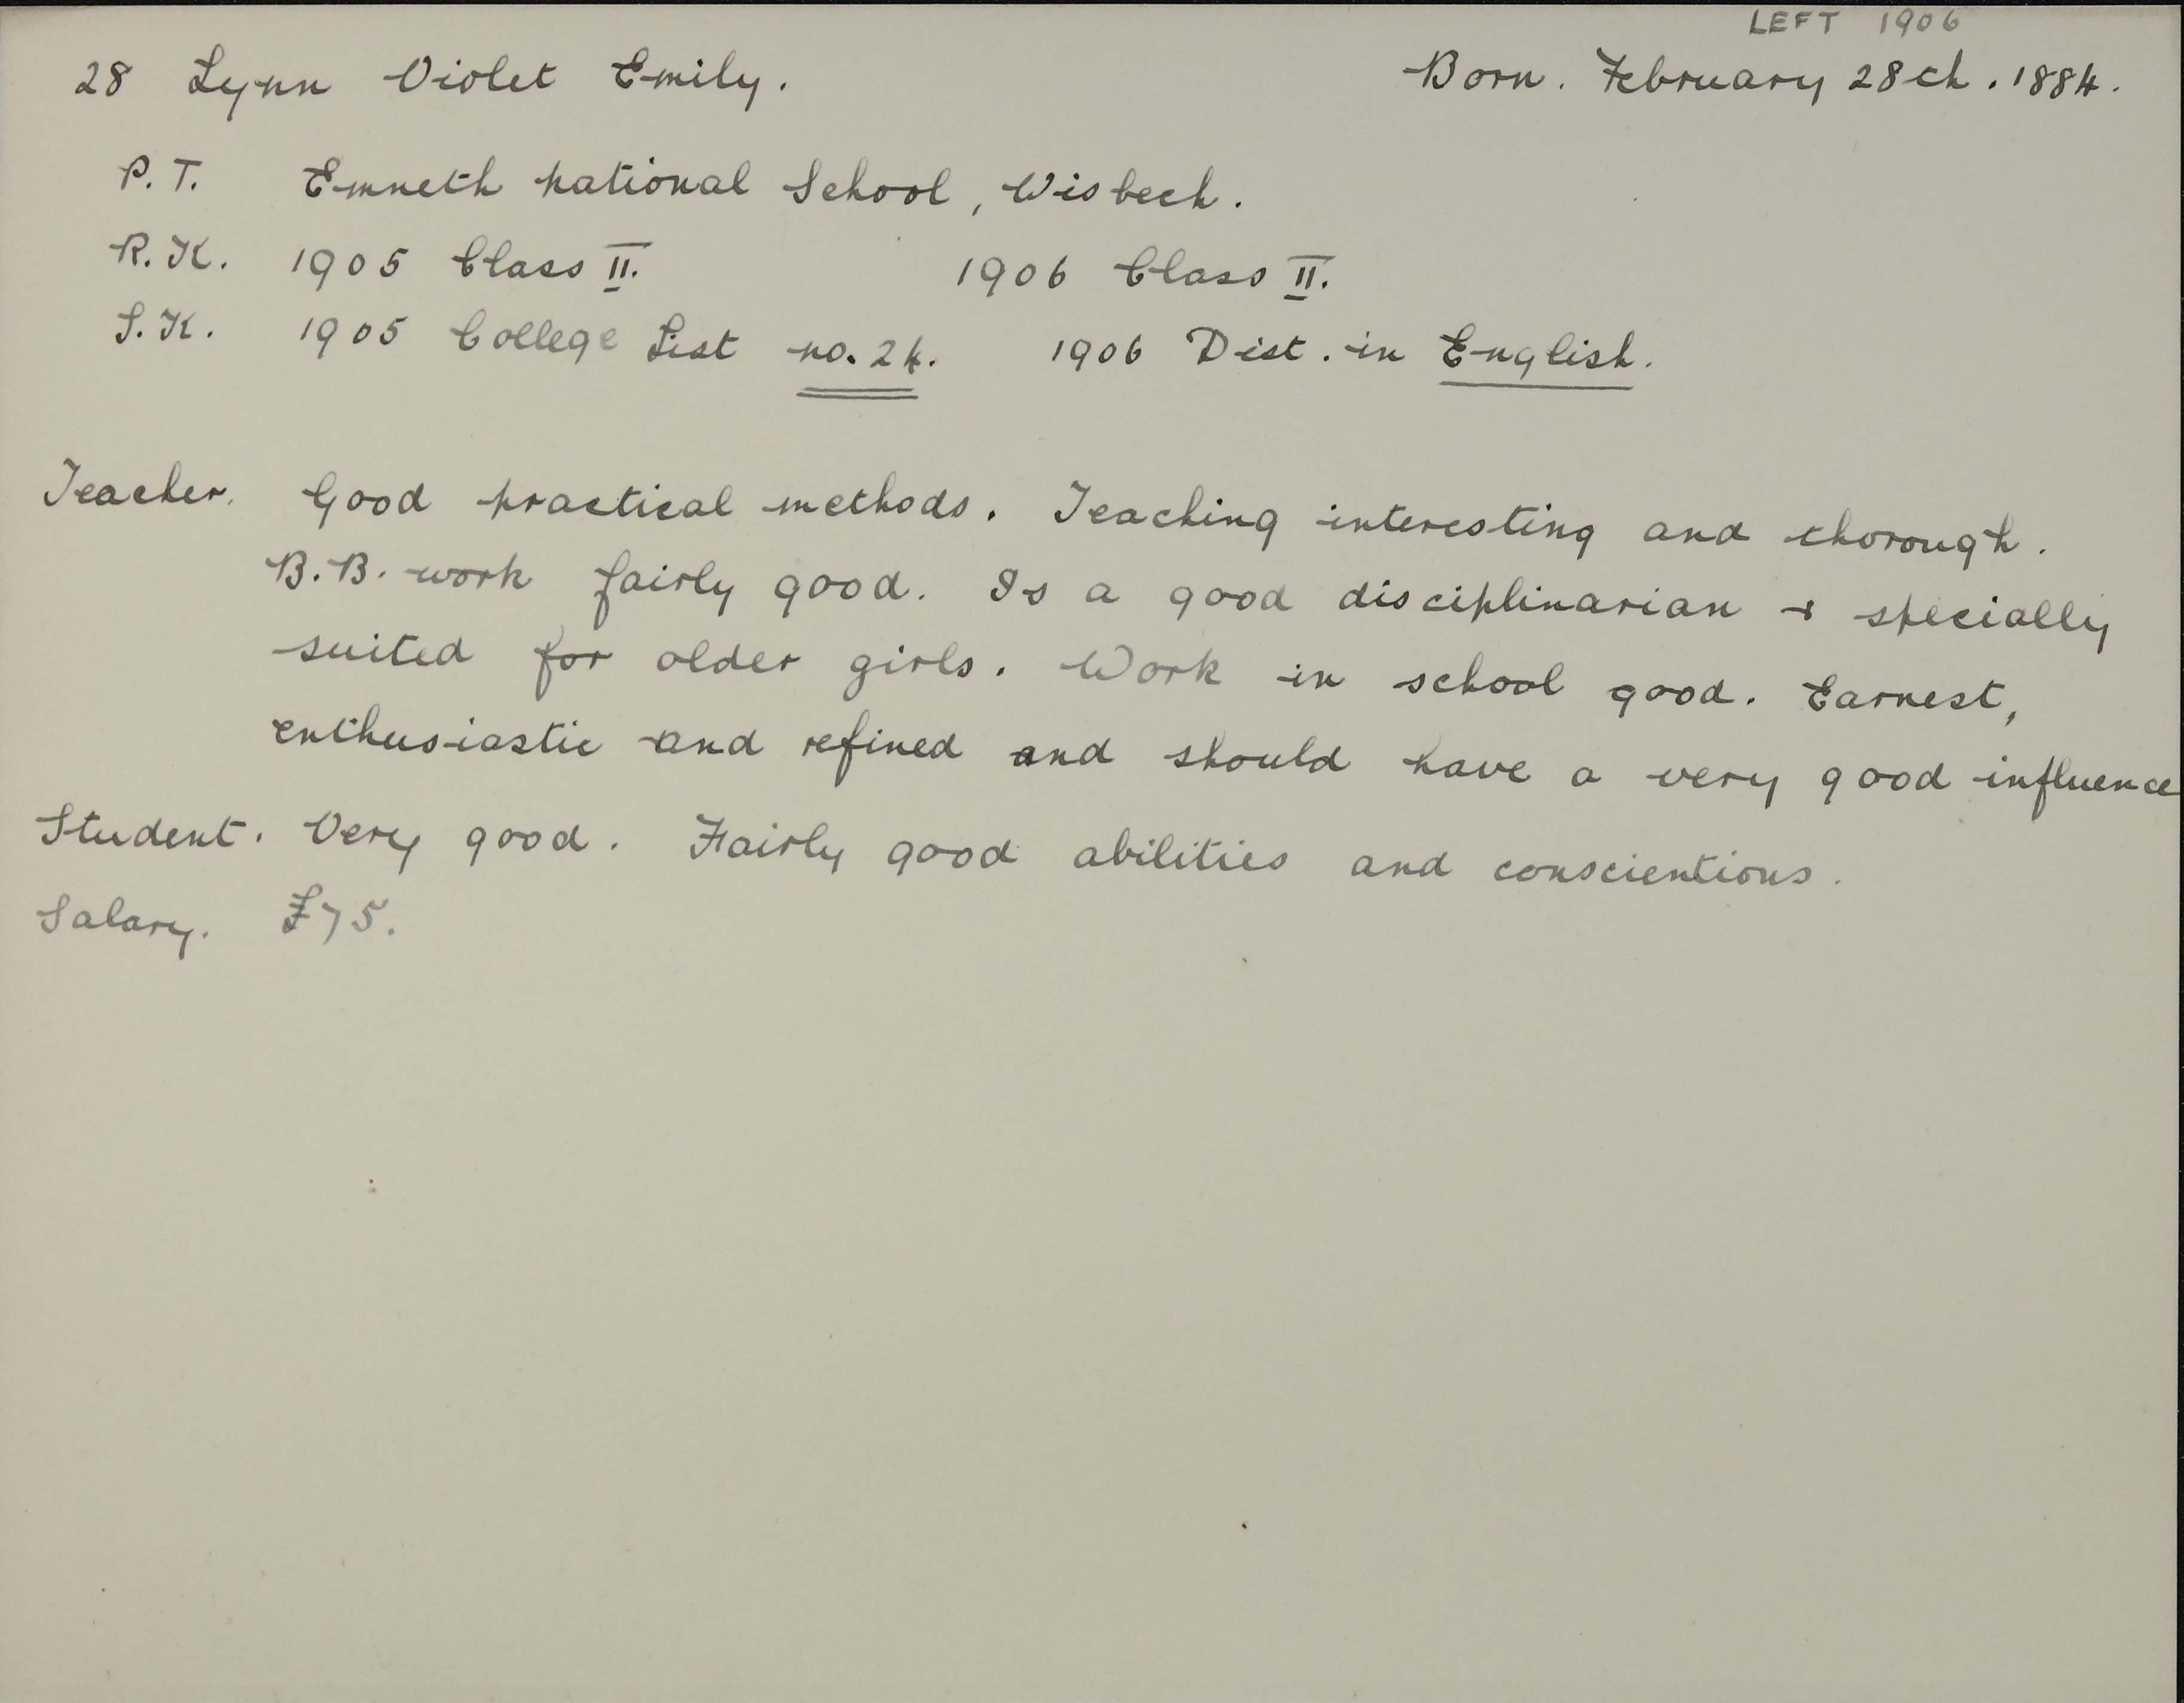 LEFT 1906
28 Lynn Violet Emily. Born. February 28th. 1884.
P. T. Emneth National School, Wisbech.
R. K. 1905 Class II. 1906 Class II.
S. K. 1905 College List no. 24. 1906 Dist. in English.
Teacher. Good practical methods. Teaching interesting and thorough.
B. B. work fairly good. Is a good disciplinarian & specially
suited for older girls. Work in school good. Earnest,
enthusiastic and refined and should have a very good influence
Student. Very good. Fairly good abilities and conscientious.
Salary. £75.